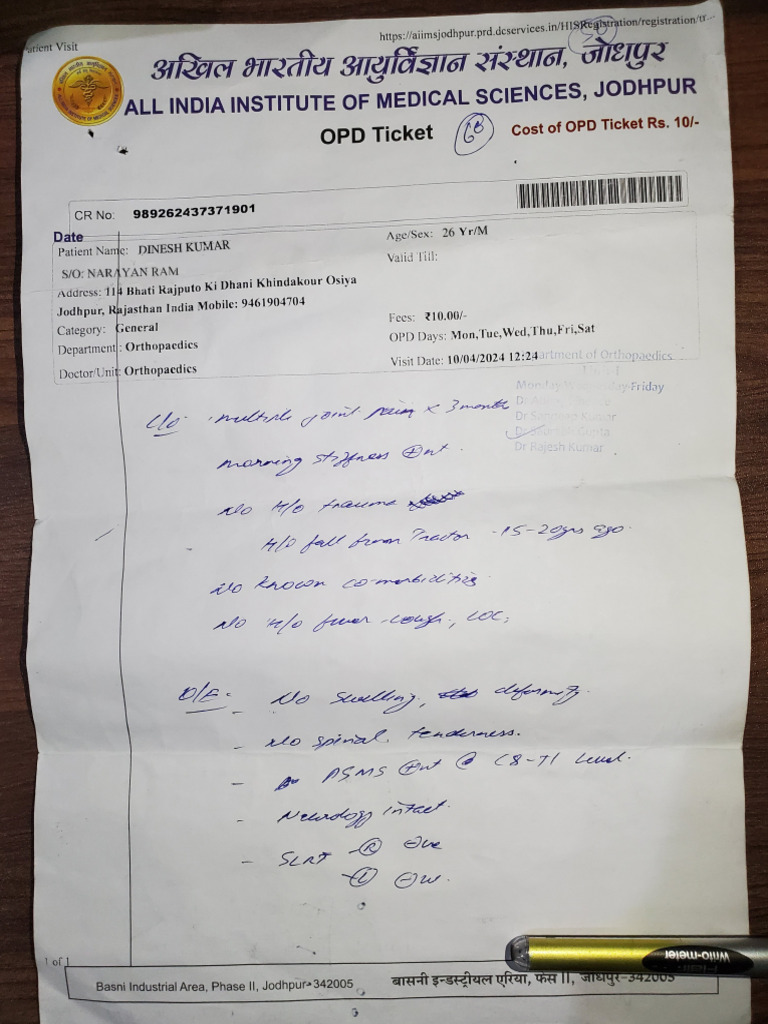 Patient Visit
https://aiimsjodhpur.prd.dcservices.in/HISRegistration/registration/tr...
अखिल भारतीय आयुर्विज्ञान संस्थान, जोधपुर
ALL INDIA INSTITUTE OF MEDICAL SCIENCES, JODHPUR
OPD Ticket
Cost of OPD Ticket Rs. 10/-
CR No: 989262437371901
Date
Patient Name: DINESH KUMAR
Age/Sex: 26 Yr/M
S/O: NARAYAN RAM
Valid Till:
Address: 114 Bhati Rajputo Ki Dhani Khindakour Osiya
Jodhpur, Rajasthan India Mobile: 9461904704
Category: General
Fees: ₹10.00/-
Department : Orthopaedics
OPD Days: Mon,Tue,Wed,Thu,Fri,Sat
Doctor/Unit: Orthopaedics
Visit Date: 10/04/2024 12:24
Department of Orthopaedics
Monday Wednesday Friday
Dr Kumar
Dr Gupta
Dr Rajesh Kumar
C/o multiple joint pain x 3 months
morning stiffness ⊕nt.
No H/o trauma
H/o fall from Tractor - 15-20yrs ago.
No known co-morbidities
No H/o fever cough, LOC,
O/E - No swelling, deformity.
- No spinal tenderness.
- PSMS ⊕nt @ C8-T1 level.
- Neurology intact.
- SLRT Ⓡ ⊖ve
Ⓛ ⊖ve.
1 of 1
Basni Industrial Area, Phase II, Jodhpur-342005
बासनी इन्डस्ट्रीयल एरिया, फेस II, जोधपुर-342005
Writo-meter